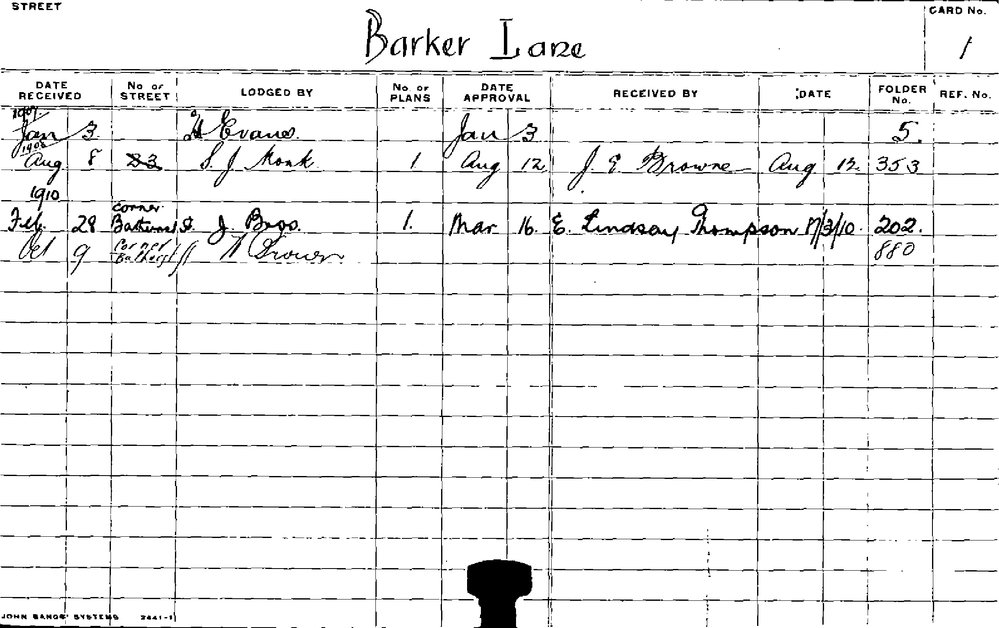 STREET
CARD No.
Barker Lane
1
DATE RECEIVED No OF STREET LODGED BY No. OF PLANS DATE APPROVAL RECEIVED BY DATE FOLDER No. REF. No.
1907
Jan 3 H Evans. Jan 3 5.
1908
Aug 8 23 S. J. Monk 1 Aug 12 J. E Browne Aug 12 353
1910
Feb. 28 corner Bathurst St. J. Bros. 1. Mar 16. E. Lindsay Thompson 17/3/10. 202.
Oct 9 Corner Bathurst 880
JOHN SANDS' SYSTEMS 2441-1